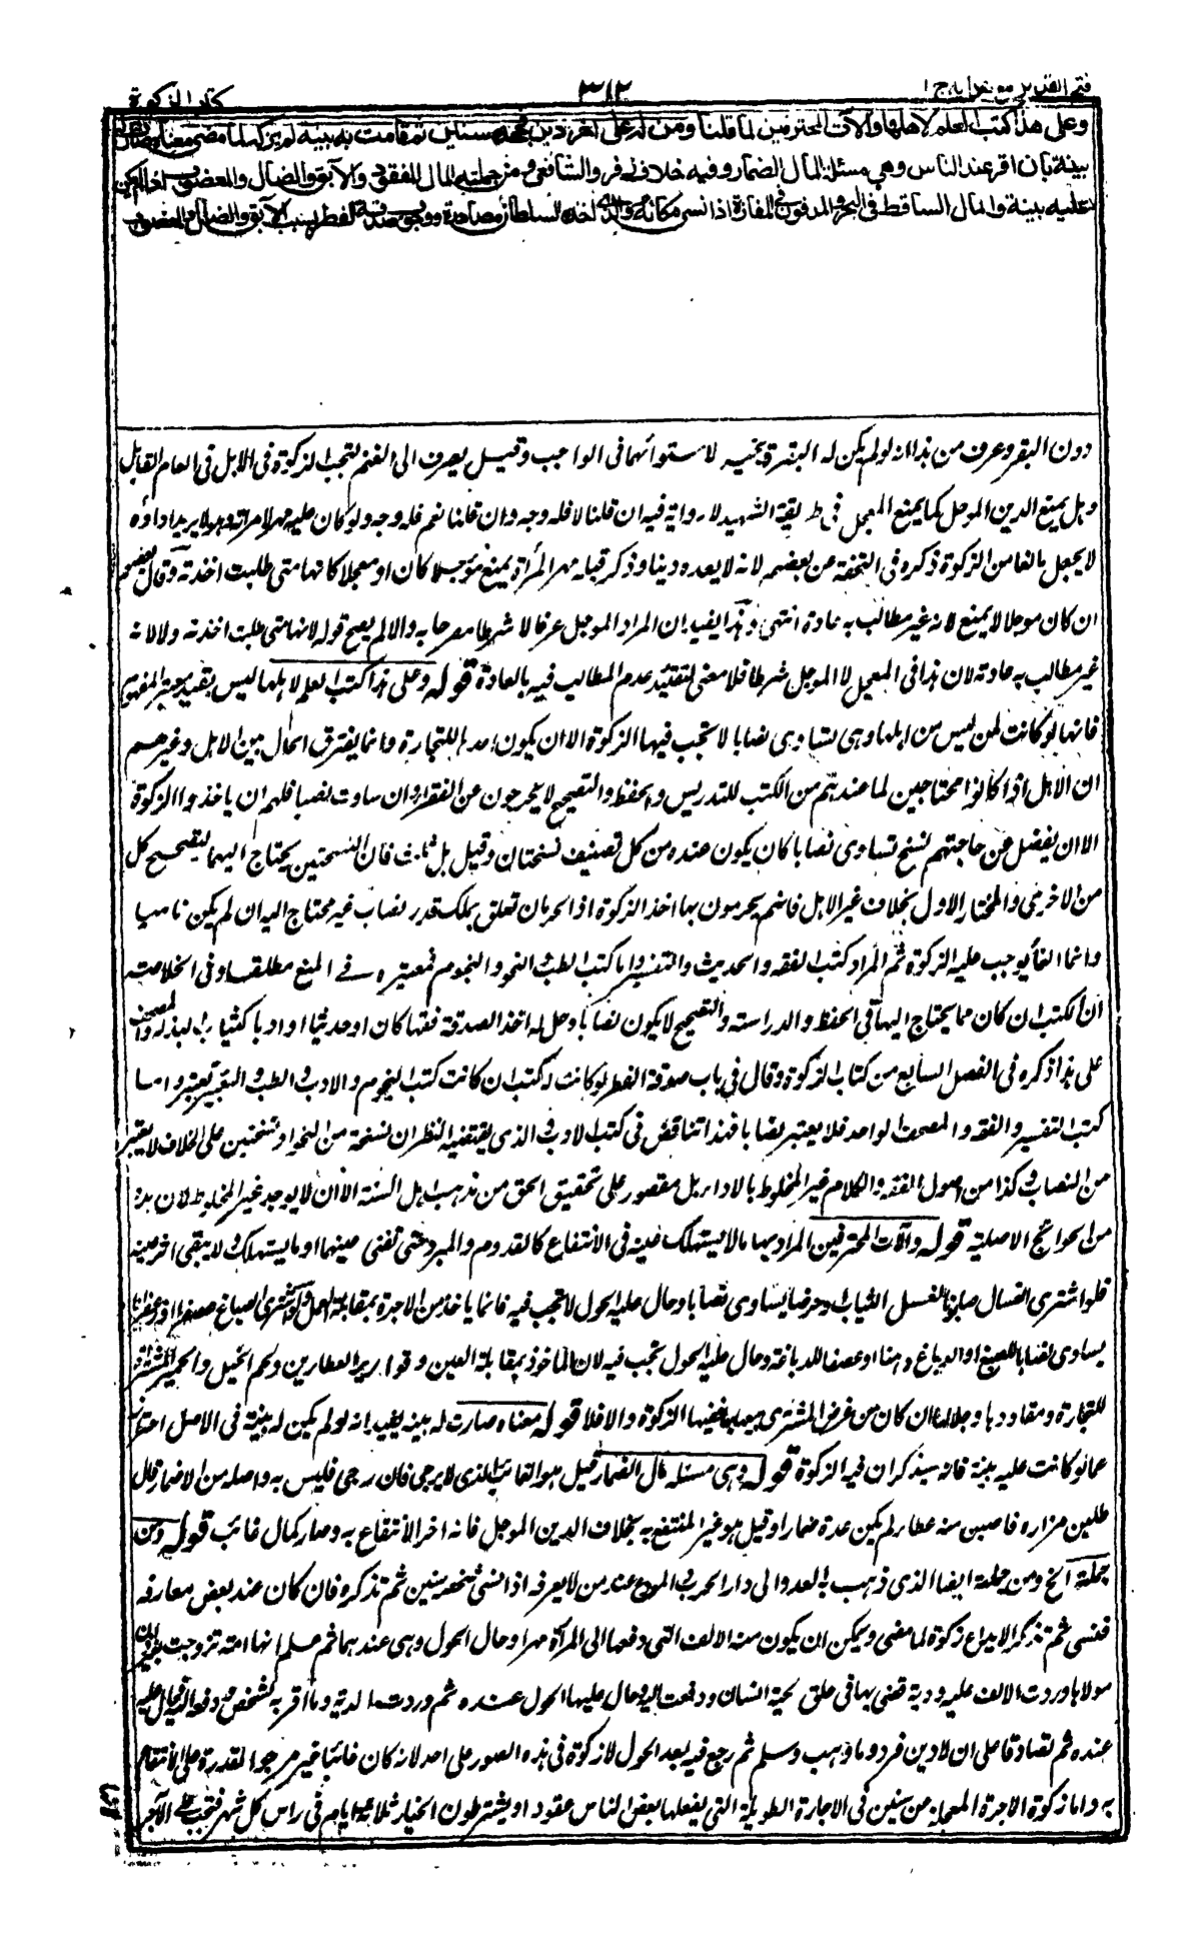 فتح القدير مع هدايه ج ١ ٣١٢ كتاب الزكوة
وعلى هذا كتب العلم لاهلها والات المحترفين لما قلنا ومن له على اخر دين فجحده سنين ثم قامت به بينة لم يزكه لما مضى معناه صارت له
بينة بان اقر عند الناس وهي مسئلة المال الضمار وفيه خلاف زفر والشافعي ومن جملته المال المفقود والآبق والضال والمغصوب اذا لم يكن
عليه بينة والمال الساقط في البحر والمدفون في المفازة اذا نسي مكانه والذى اخذه السلطان مصادرة ووجوب صدقة الفطر بسبب الآبق والضال والمغصوب
دون البقر وعرف من هذا انه لو لم يكن له البقرة يخير لاستوائهما فى الواجب وقيل يصرف الى الغنم لتجب الزكوة فى الابل فى العام القابل
وهل يمنع الدين الموجل كما يمنع المعجل فى طريقة الشهيد لا رواية فيه ان قلنا لا فله وجه وان قلنا نعم فله وجه ولو كان عليه مهر لامرأته وهو لا يريد اداؤه
لا يجعل مانعا من الزكوة ذكره فى التحفة عن بعضهم لانه لا يعده دينا وذكر قبله مهر المرأة يمنع مؤجلا كان او معجلا لانها متى طلبت اخذته وقال بعضهم
ان كان موجلا لا يمنع لانه غير مطالب به عادة انتهى وهذا يفيد ان المراد الموجل عرفا لا شرطا مصرحا به والا لم يصح قوله لانها متى طلبت اخذته ولا لانه
غير مطالب به عادة لان هذا فى المعجل لا الموجل شرطا فلا معنى لتقييد عدم المطالب فيه بالعادة قوله وعلى هذا كتب العلم لاهلها ليس بقيد معتبر المفهوم
فانها لو كانت لمن ليس من اهلها وهى تساوى نصابا لا تجب فيها الزكوة الا ان يكون اعدها للتجارة وانما يفترق الحال بين الاهل وغيرهم
ان الاهل اذا كانوا محتاجين لما عندهم من الكتب للتدريس والحفظ والتصحيح لا يخرجون عن الفقر وان ساوت نصبا فلهم ان ياخذوا الزكوة
الا ان يفضل عن حاجتهم نسخ تساوى نصابا كان يكون عنده من كل تصنيف نسختان وقيل بل ثلاث فان النسختين يحتاج اليهما لتصحيح كل
من الاخرى والمختار الاول بخلاف غير الاهل فانهم يحرمون بها اخذ الزكوة اذ الحرمان تعلق بملك قدر نصاب غير محتاج اليه ان لم يكن ناميا
وانما النماء يوجب عليه الزكوة ثم المراد كتب الفقه والحديث والتفسير اما كتب الطب والنحو والنجوم فمعتبره فى المنع مطلقا وفى الخلاصة
ان الكتب ان كان مما يحتاج اليها فى الحفظ والدراسة والتصحيح لا يكون نصابا وحل له اخذ الصدقة فقها كان او حديثا او ادبا كثياب البذلة والمصحف
على هذا ذكره فى الفصل السابع من كتاب الزكوة وقال فى باب صدقة الفطر لو كانت له كتب ان كانت كتب النجوم والادب والطب والتعبير تعتبر واما
كتب التفسير والفقه والمصحف الواحد فلا يعتبر نصابا فهذا تناقض فى كتب الادب والذى يقتضيه النظر ان نسخة من النحو او نسختين على الخلاف لا يعتبر
من النصاب وكذا من اصول الفقه والكلام غير المخلوط بالاراء بل مقصور على تحقيق الحق من مذهب اهل السنة الا ان لا يوجد غير المخلوط لان هذه
من الحوائج الاصلية قوله وآلات المحترفين المراد بها ما لا يستهلك عينه فى الانتفاع كالقدوم والمبرد حتى تفنى عينها او ما يستهلك ولا يبقى اثر عينه
فلو اشترى الغسال صابونا لغسل الثياب او حرضا يساوى نصابا وحال عليه الحول لا تجب فيه فانما ياخذ من الاجرة بمقابلة العمل ولو اشترى الصباغ عصفرا او زعفرانا
يساوى نصابا للصبغ او الدباغ دهنا او عفصا للدباغة وحال عليه الحول تجب فيه لان الماخوذ بمقابلة العين وقوارير العطارين ولجم الخيل والحمير المشتراة
للتجارة ومقاودها وجلالها ان كان من غرض المشترى بيعها بها ففيها الزكوة والا فلا قوله معناه صارت له بينة يفيد انه لو لم يكن له بينة فى الاصل احترازا
عما لو كانت عليه بينة فانه سيذكر ان فيه الزكوة قوله وهى مسئلة مال الضمار قيل هو الغائب الذى لا يرجى فان رجى فليس به واصله من الاضمار قال
طلبن مزاره فاصبن منه عطاء لم يكن عدة ضمارا وقيل هو غير المنتفع به بخلاف الدين الموجل فانه اخر الانتفاع به وصار كمال غائب قوله ومن
جملته الخ ومن جملته ايضا الذى ذهب به العدو الى دار الحرب والمودع عند من لا يعرفه اذا نسى شخصه سنين ثم تذكره فان كان عند بعض معارفه
فنسى ثم تذكر الايداع زكوة لما مضى ويمكن ان يكون منه الالف التى دفعها الى المرأة مهرا وحال الحول وهى عندها ثم علم انها امة تزوجت بغير اذن
مولاها وردت الالف عليه ودية قضى بها فى حلق لحية انسان ودفعت اليه وحال عليها الحول عنده ثم وردت الدية وما اقر به لشخص ودفعه اليه فحال عليه
عنده ثم تصادقا على ان لا دين فرد وما وهب وسلم ثم رجع فيه بعد الحول لا زكوة فى هذه الصور على احد لانه كان غائبا غير مرجو القدرة على الانتفاع
به واما زكوة الاجرة المعجلة عن سنين فى الاجارة الطويلة التى يفعلها بعض الناس عقودا ويشترطون الخيار ثلاثة ايام فى راس كل شهر فتجب على الآجر